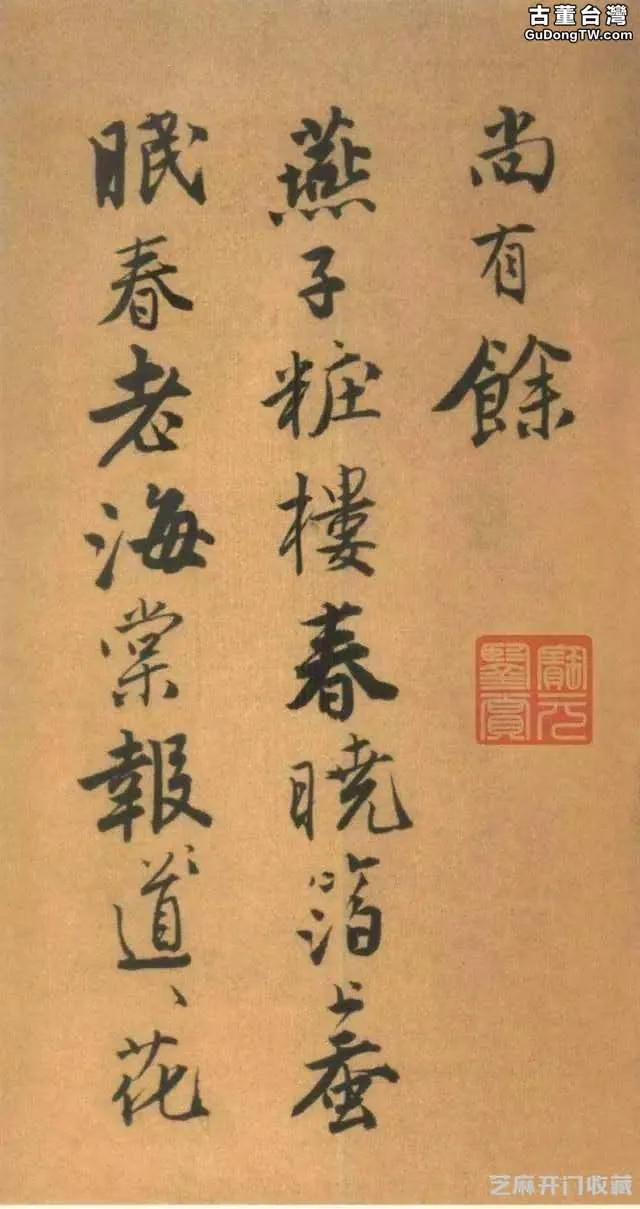 古董台灣
GuDongTW.com
尚有餘
燕子粧樓春曉箔上蚕
眠春老海棠報〻道〻花
芝麻开门收藏